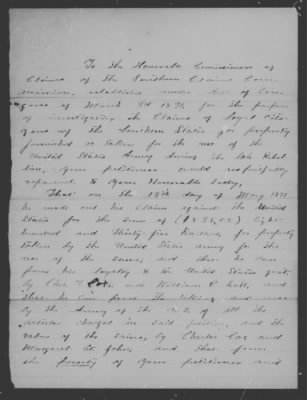 To the Honorable Commissioners of
Claims of the Southern Claims Com-
mission, established under Act of Con-
gress of March 3d 1871, for the purpose
of investigating the Claims of Loyal Citi-
zens of the Southern States for property
furnished or taken for the use of the
United States Army during the late Rebel-
lion, your petitioner would respectfully
represent to your Honorable body,
That on the day of May 1871
he made out his Claim against the United
States for the sum of ($835.00) Eight
hundred and thirty-five Dollars, for property
taken by the United States army for the
use of the same, and that he can
prove his loyalty to the United States Govt.
by Chas. and William P. Hall, and
that he can prove the taking and use
by the Army of the U.S. of all the
articles charged in said petition, and the
value of the same, by Charles Cox and
Margaret St. John, and that from
the poverty of your petitioner and